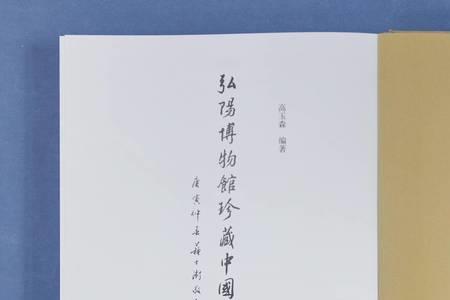 高玉森 编著
弘陽博物館珍藏中國
庚寅仲春蘇士澍敬